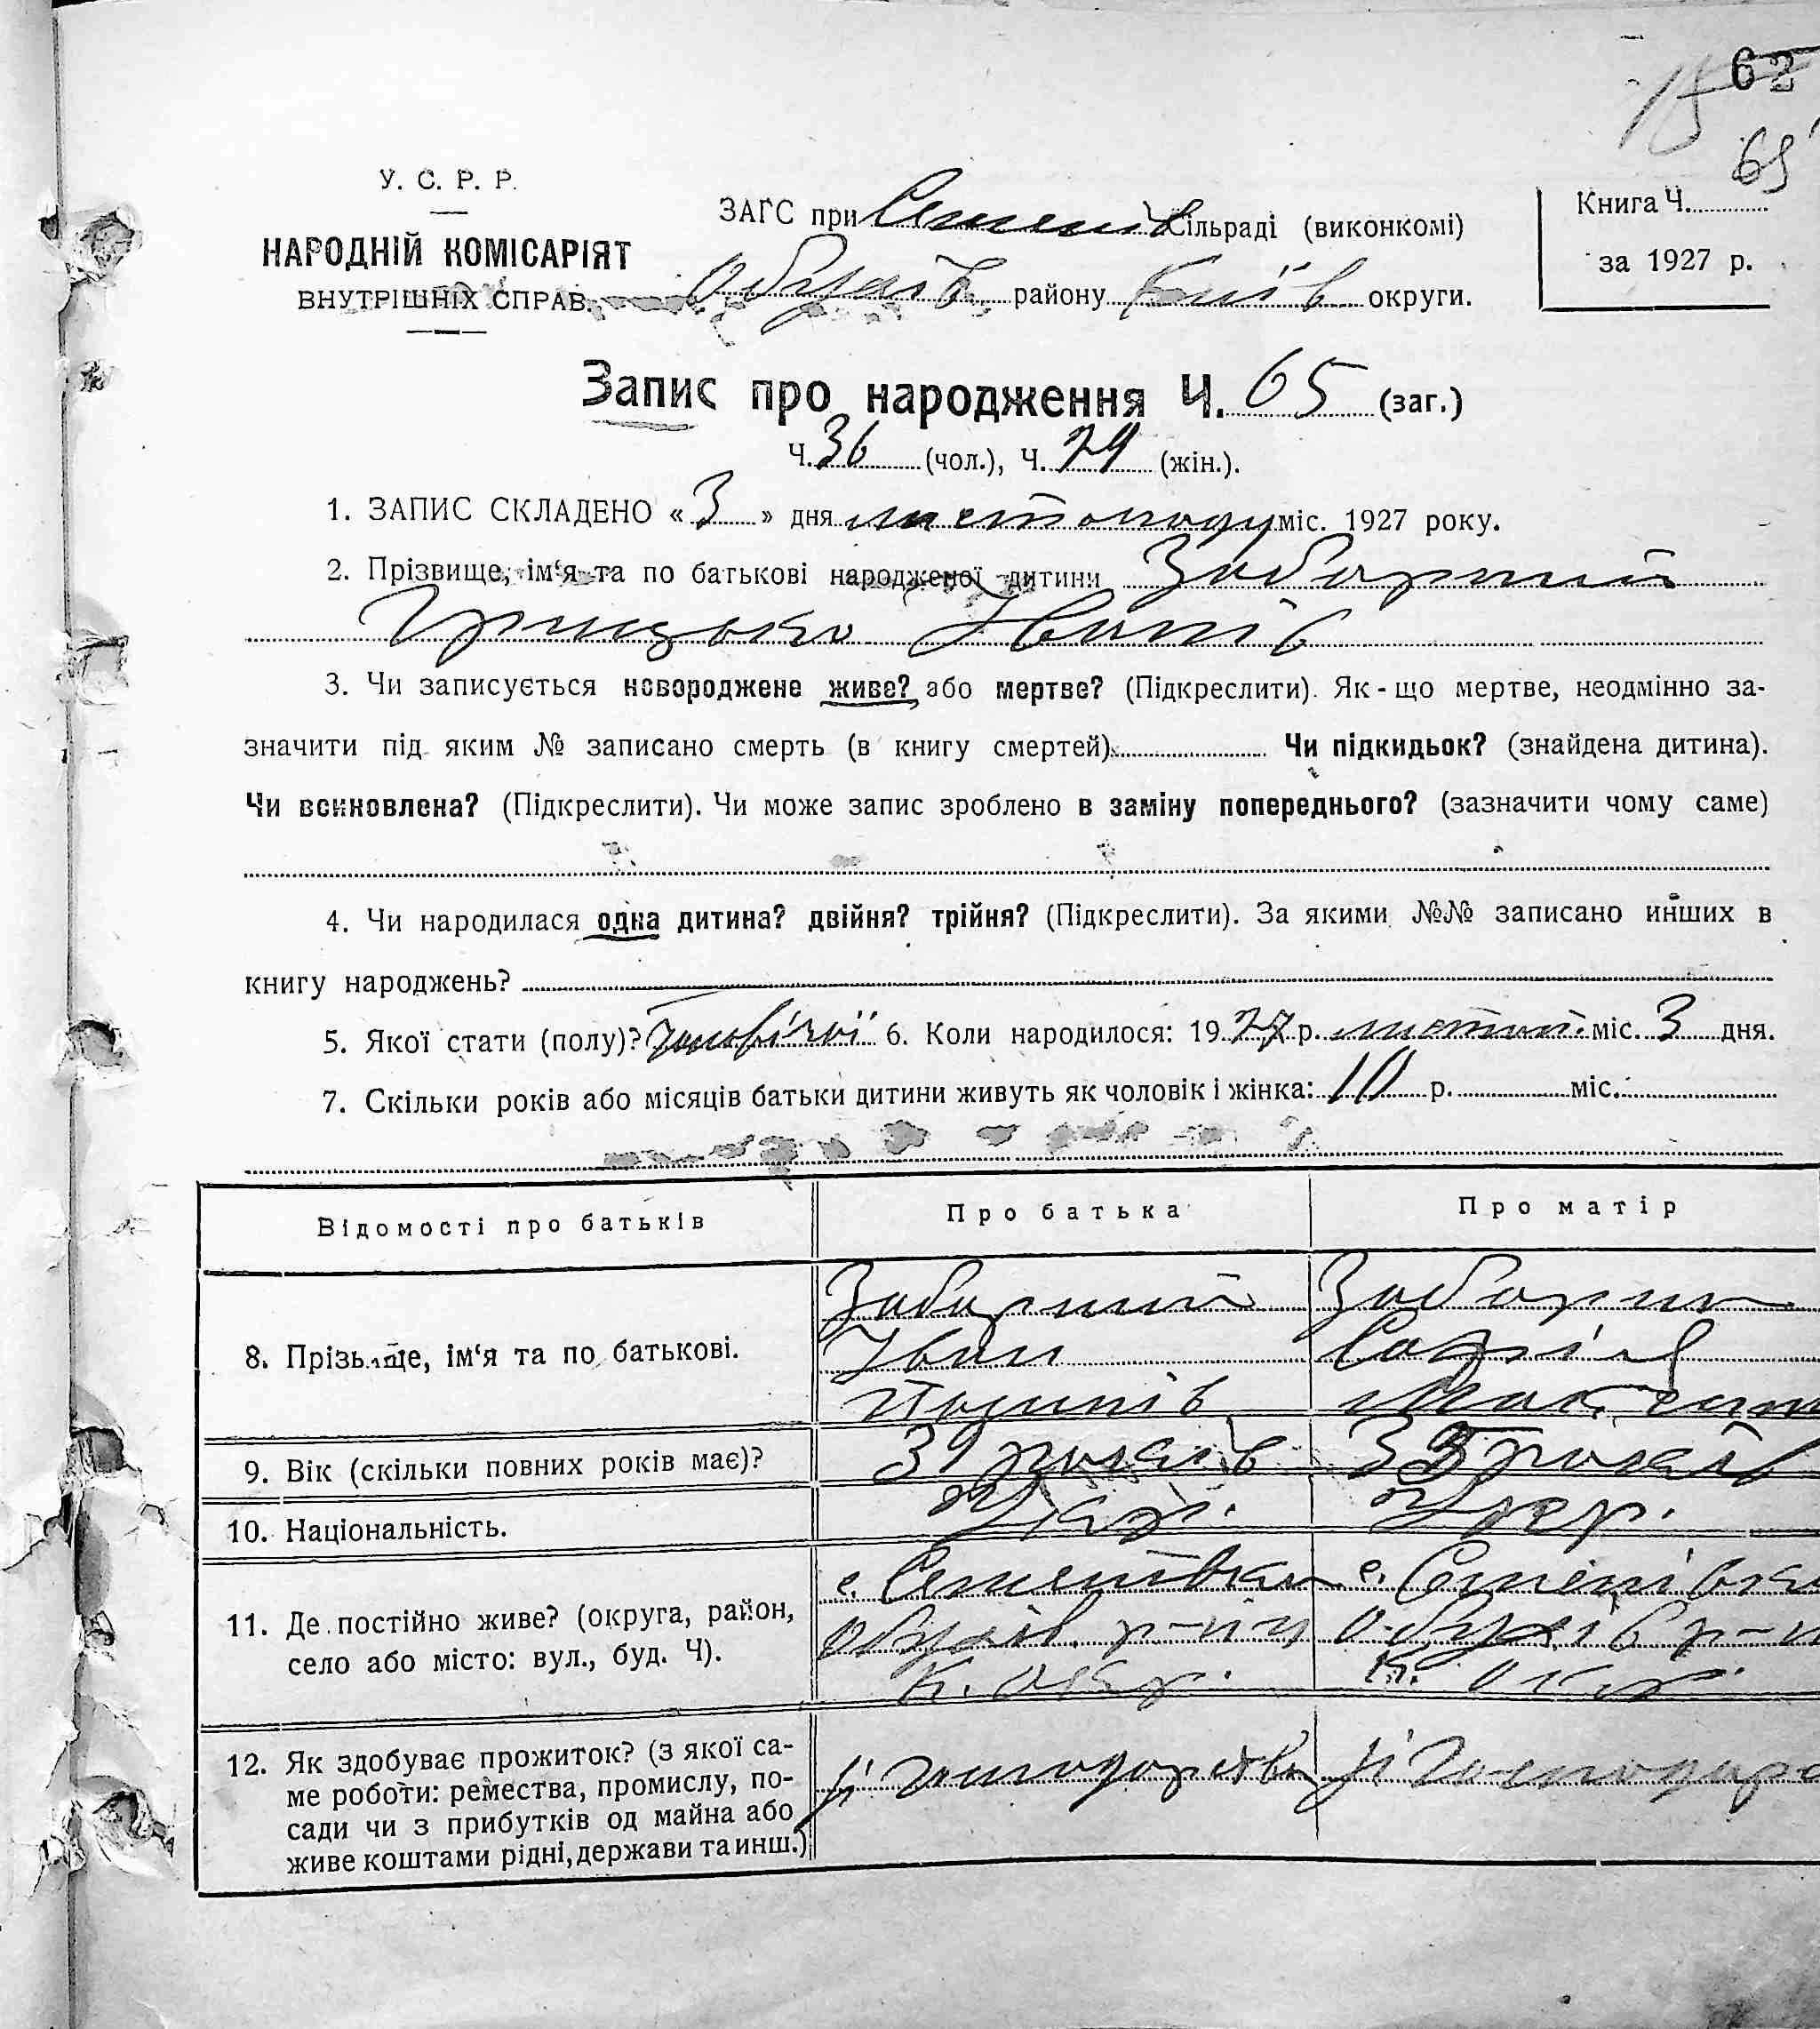 62
15
65
У. С. Р. Р.
НАРОДНІЙ КОМІСАРІЯТ
ВНУТРІШНІХ СПРАВ.
ЗАГС при Семенів Сільраді (виконкомі)
Обухів. району Київ округи.
Книга Ч.
за 1927 р.
Запис про народження Ч. 65 (заг.)
Ч. 36 (чол.), Ч. 29 (жін.).
1. ЗАПИС СКЛАДЕНО « 3 » дня листопаду міс. 1927 року.
2. Прізвище, ім‘я та по батькові народженої дитини Забарний
Грицько Іванів
3. Чи записується новороджене живе? або мертве? (Підкреслити). Як-що мертве, неодмінно за-
значити під яким № записано смерть (в книгу смертей) Чи підкидьок? (знайдена дитина).
Чи всиновлена? (Підкреслити). Чи може запис зроблено в заміну попереднього? (зазначити чому саме)
4. Чи народилася одна дитина? двійня? трійня? (Підкреслити). За якими №№ записано инших в
книгу народжень?
5. Якої стати (полу)? Чоловічої 6. Коли народилося: 1927 р. листоп. міс. 3 дня.
7. Скільки років або місяців батьки дитини живуть як чоловік і жінка: 10 р. міс.
Відомості про батьків
Про батька
Про матір
8. Прізвище, ім‘я та по батькові.
Забарний
Іван
Забарна
Софія
9. Вік (скільки повних років має)?
39 років
35 років
10. Національність.
Укр.
Укр.
11. Де постійно живе? (округа, район,
село або місто: вул., буд. Ч).
с. Семенівка
Обухів. р-ну
К. окр.
с. Семенівка
Обухів р-н
К. окр.
12. Як здобуває прожиток? (з якої са-
ме роботи: ремества, промислу, по-
сади чи з прибутків од майна або
живе коштами рідні, держави та инш.)
господарства
господарс